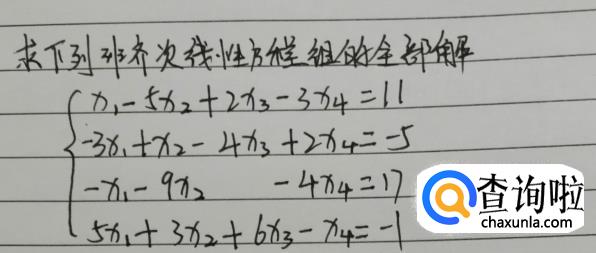 求下列非齐次线性方程组的全部解
x₁-5x₂+2x₃-3x₄=11
-3x₁+x₂-4x₃+2x₄=-5
-x₁-9x₂ -4x₄=17
5x₁+3x₂+6x₃-x₄=-1
查询啦
chaxunla.com